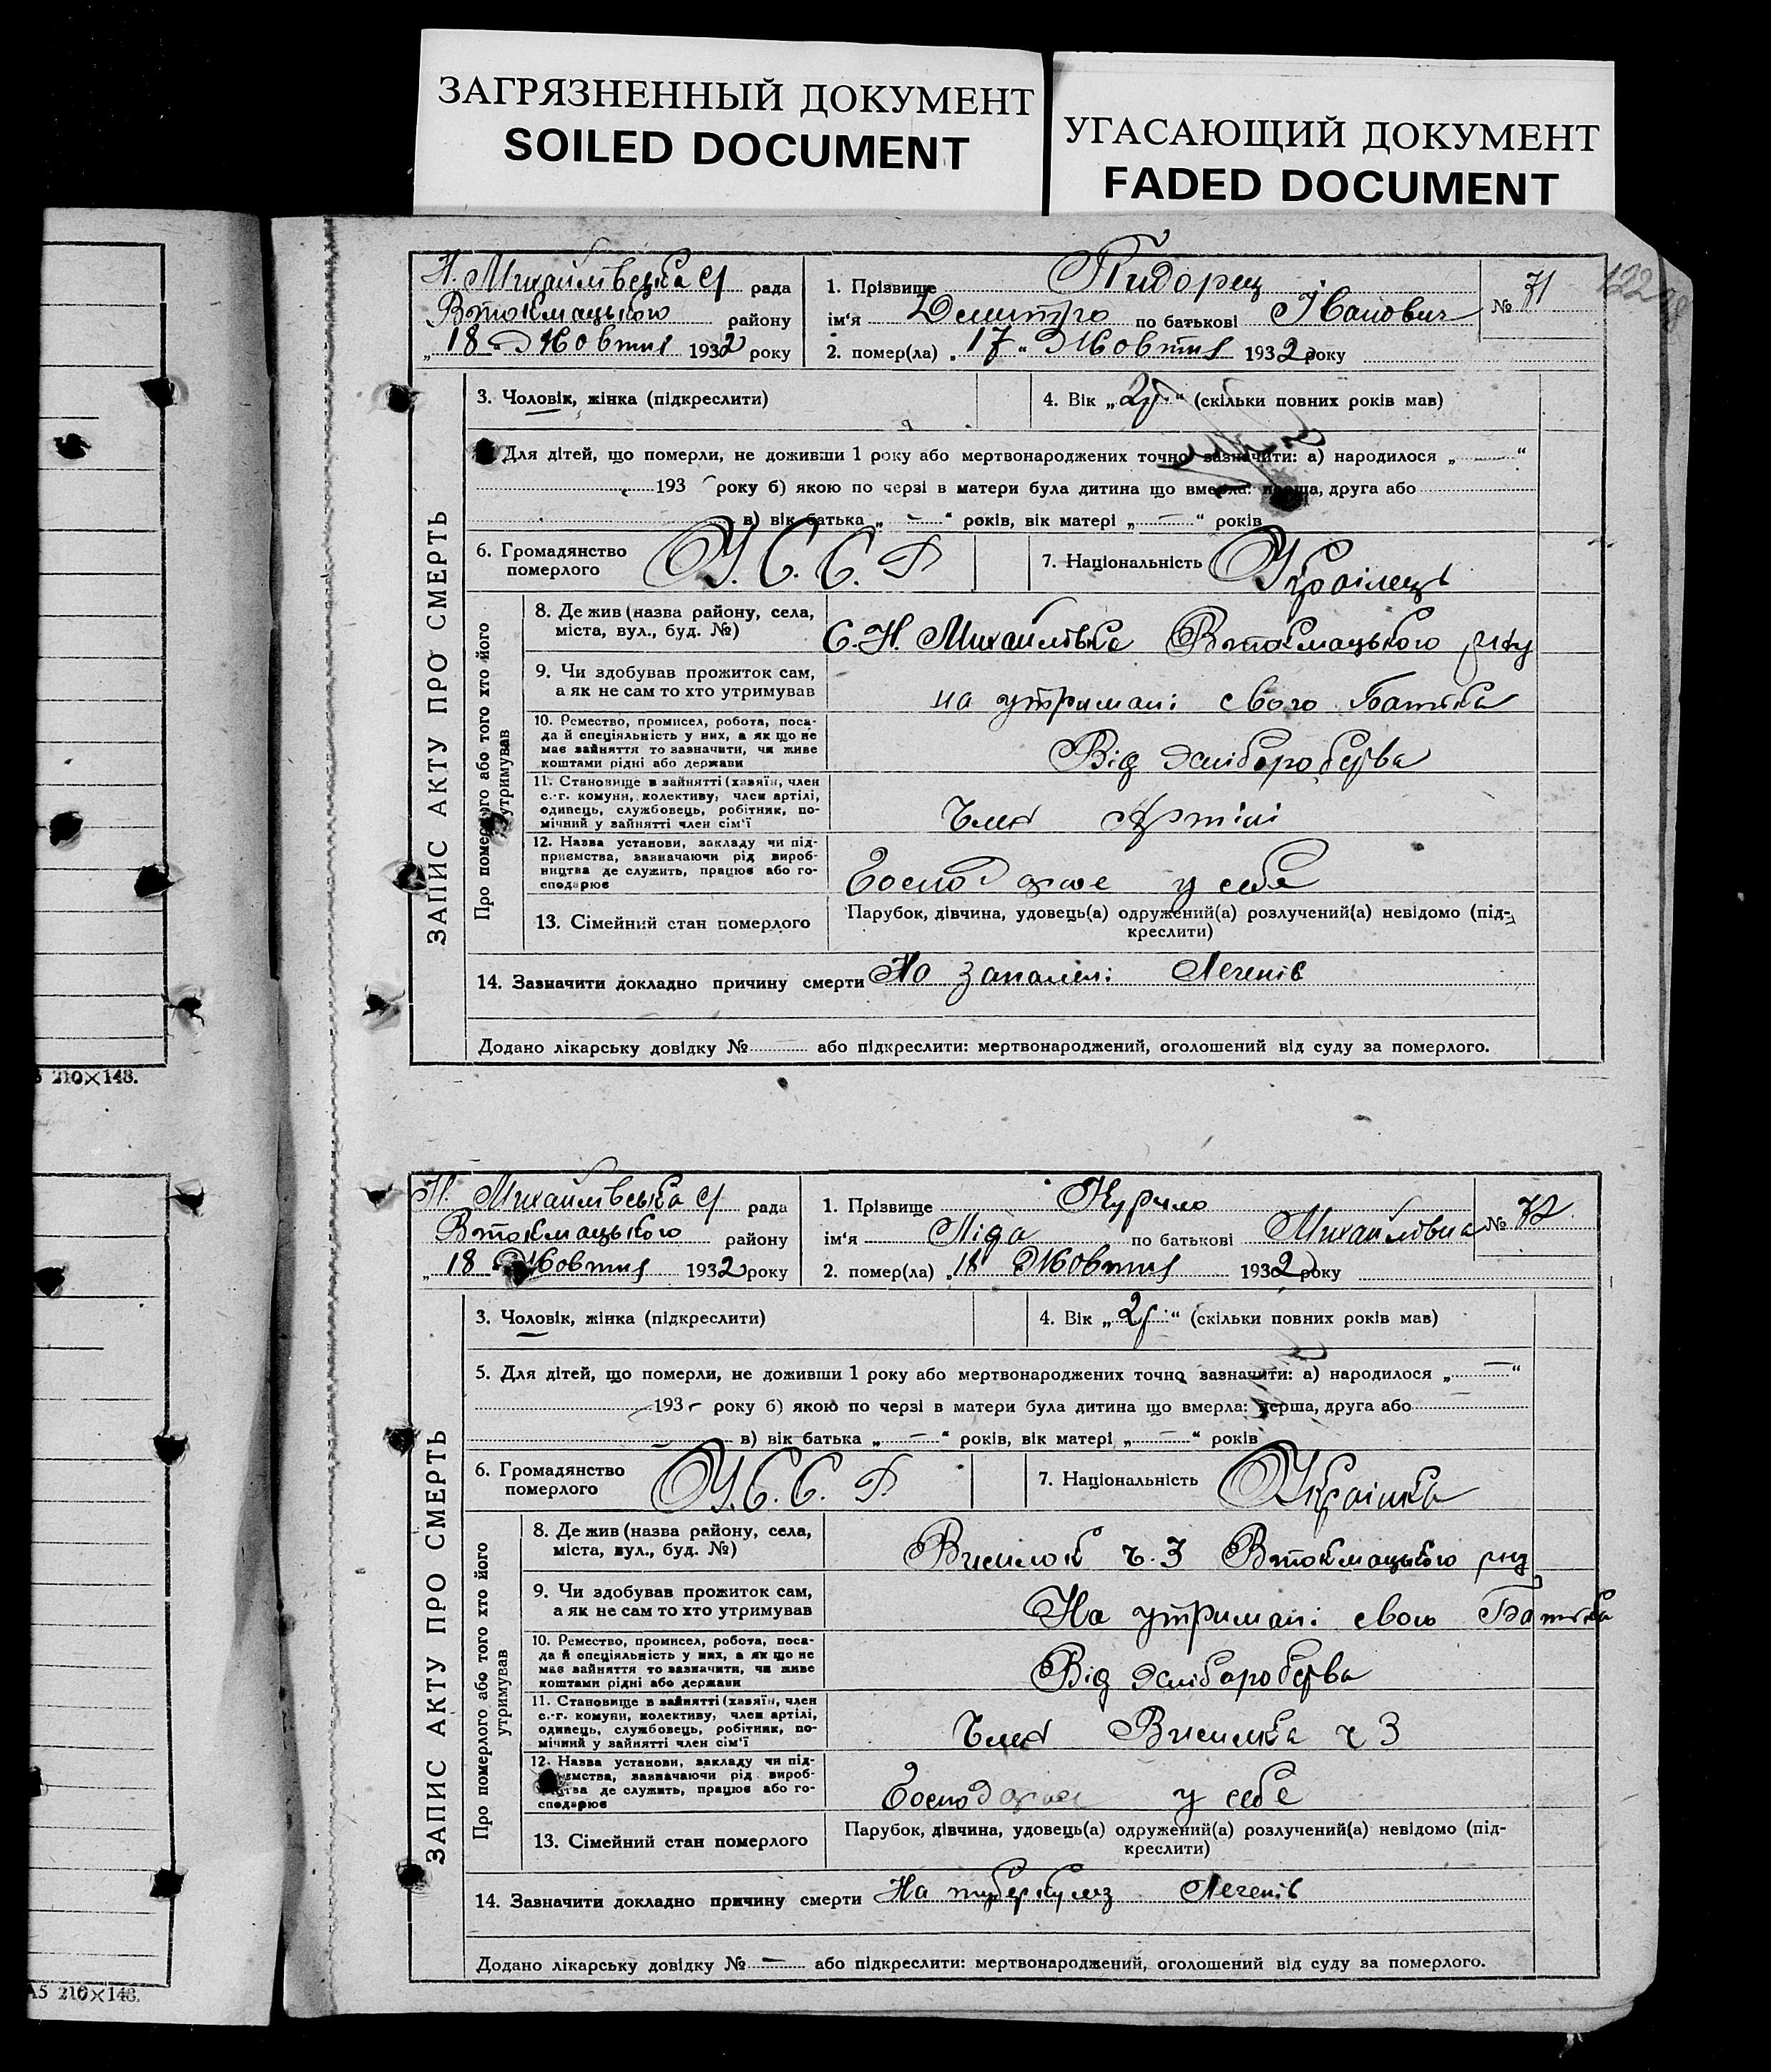 ЗАГРЯЗНЕННЫЙ ДОКУМЕНТ
SOILED DOCUMENT
УГАСАЮЩИЙ ДОКУМЕНТ
FADED DOCUMENT
Н. Михайлівська с/ рада
Втокмацького району
„18“ Жовтня 1932 року
1. Прізвище Тидорец
ім‘я Демитро по батькові Іванович
2. помер(ла) „17“ Жовтня 1932 року
№ 71
ЗАПИС АКТУ ПРО СМЕРТЬ
3. Чоловік, жінка (підкреслити)
4. Вік „2р“ (скільки повних років мав)
Для дітей, що померли, не доживши 1 року або мертвонароджених точно зазначити: а) народилося „ — “
193 року б) якою по черзі в матери була дитина що вмерла: перша, друга або
в) вік батька „ — “ років, вік матері „ — “ років
6. Громадянство
померлого
У. С. С. Р
7. Національність Українець
Про померлого або того хто його
утримував
8. Де жив (назва району, села,
міста, вул., буд. №)
С. Н. Михайлівка Втокмацького р-ну
9. Чи здобував прожиток сам,
а як не сам то хто утримував
на утримані свого Батька
10. Ремество, промисел, робота, поса-
да й спеціяльність у них, а як що не
має зайняття то зазначити, чи живе
коштами рідні або держави
Від хліборобства
11. Становище в зайнятті (хазяїн, член
с.-г. комуни, колективу, член артілі,
одинець, службовець, робітник, по-
мічний у зайнятті член сім‘ї
Член Артілі
12. Назва установи, закладу чи під-
приємства, зазначаючи рід вироб-
ництва де служить, працює або го-
сподарює
Господарює у себе
13. Сімейний стан померлого
Парубок, дівчина, удовець(а) одружений(а) розлучений(а) невідомо (під-
креслити)
14. Зазначити докладно причину смерти По запалені Легенів
Додано лікарську довідку № або підкреслити: мертвонароджений, оголошений від суду за померлого.
210×148.
Н. Михайлівська с/ рада
Втокмацького району
„18“ Жовтня 1932 року
1. Прізвище Курило
ім‘я Ліда по батькові Михайлівна
2. помер(ла) „18 Жовтня 1932 року
№ 72
ЗАПИС АКТУ ПРО СМЕРТЬ
3. Чоловік, жінка (підкреслити)
4. Вік „2р“ (скільки повних років мав)
5. Для дітей, що померли, не доживши 1 року або мертвонароджених точно зазначити: а) народилося „ — “
193 — року б) якою по черзі в матери була дитина що вмерла: перша, друга або
в) вік батька „ — “ років, вік матері „ — “ років
6. Громадянство
померлого
У. С. С. Р
7. Національність Українка
Про померлого або того хто його
утримував
8. Де жив (назва району, села,
міста, вул., буд. №)
Висилок ч. 3 Втокмацького р-ну
9. Чи здобував прожиток сам,
а як не сам то хто утримував
На утримані свого Батька
10. Ремество, промисел, робота, поса-
да й спеціяльність у них, а як що не
має зайняття то зазначити, чи живе
коштами рідні або держави
Від хліборобства
11. Становище в зайнятті (хазяїн, член
с.-г. комуни, колективу, член артілі,
одинець, службовець, робітник, по-
мічний у зайнятті член сім‘ї
Член Висилка ч 3
12. Назва установи, закладу чи під-
приємства, зазначаючи рід вироб-
ництва де служить, працює або го-
сподарює
Господарює у себе
13. Сімейний стан померлого
Парубок, дівчина, удовець(а) одружений(а) розлучений(а) невідомо (під-
креслити)
14. Зазначити докладно причину смерти На туберкульоз Легенів
Додано лікарську довідку № — або підкреслити: мертвонароджений, оголошений від суду за померлого.
А5 210×148.